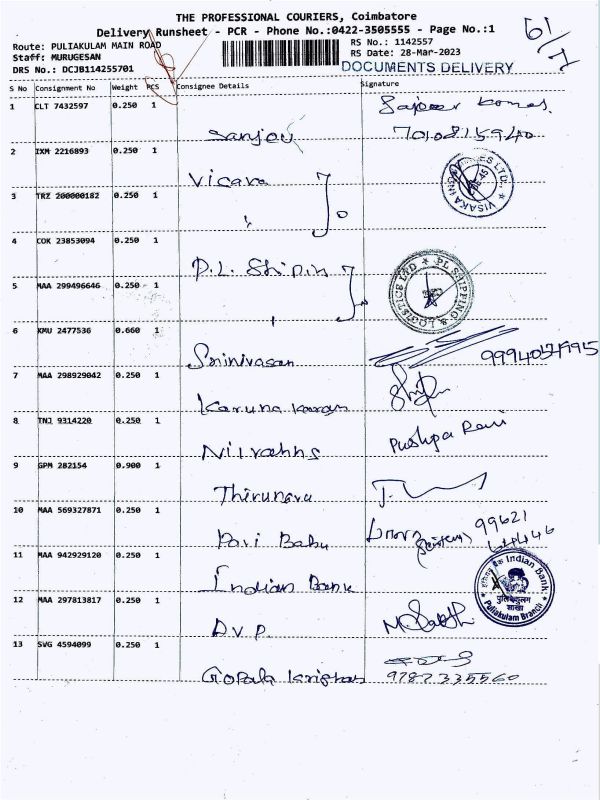 THE PROFESSIONAL COURIERS, Coimbatore
Delivery Runsheet - PCR - Phone No.:0422-3505555 - Page No.:1
61/1
Route: PULIAKULAM MAIN ROAD
RS No.: 1142557
Staff: MURUGESAN
RS Date: 28-Mar-2023
DRS No.: DCJB114255701
DOCUMENTS DELIVERY
S No Consignment No Weight PCS Consignee Details Signature
1 CLT 7432597 0.250 1
Sanjeev 7010815940
2 IXM 2216893 0.250 1
Vicava
VISAKA
LTD.
3 TRZ 200000182 0.250 1
4 COK 23853094 0.250 1
P.L. Shipin
PL SHIPPING & LOGISTICS LTD
5 MAA 299496646 0.250 1
6 KMU 2477536 0.660 1
Srinivasan
7 MAA 298929042 0.250 1
Karuna Karan
8 TNJ 9314220 0.250 1
Pushpa Rani
Nilvahns
9 GPM 282154 0.900 1
Thirunavu
10 MAA 569327871 0.250 1
99621
64446
Pavi Babu
11 MAA 942929120 0.250 1
Indian Bank
Indian Bank
पुलियकुलम
शाखा
Puliakulam Branch
12 MAA 297813817 0.250 1
D.V.P.
13 SVG 4594099 0.250 1
Gopala Krishnan 9787335560